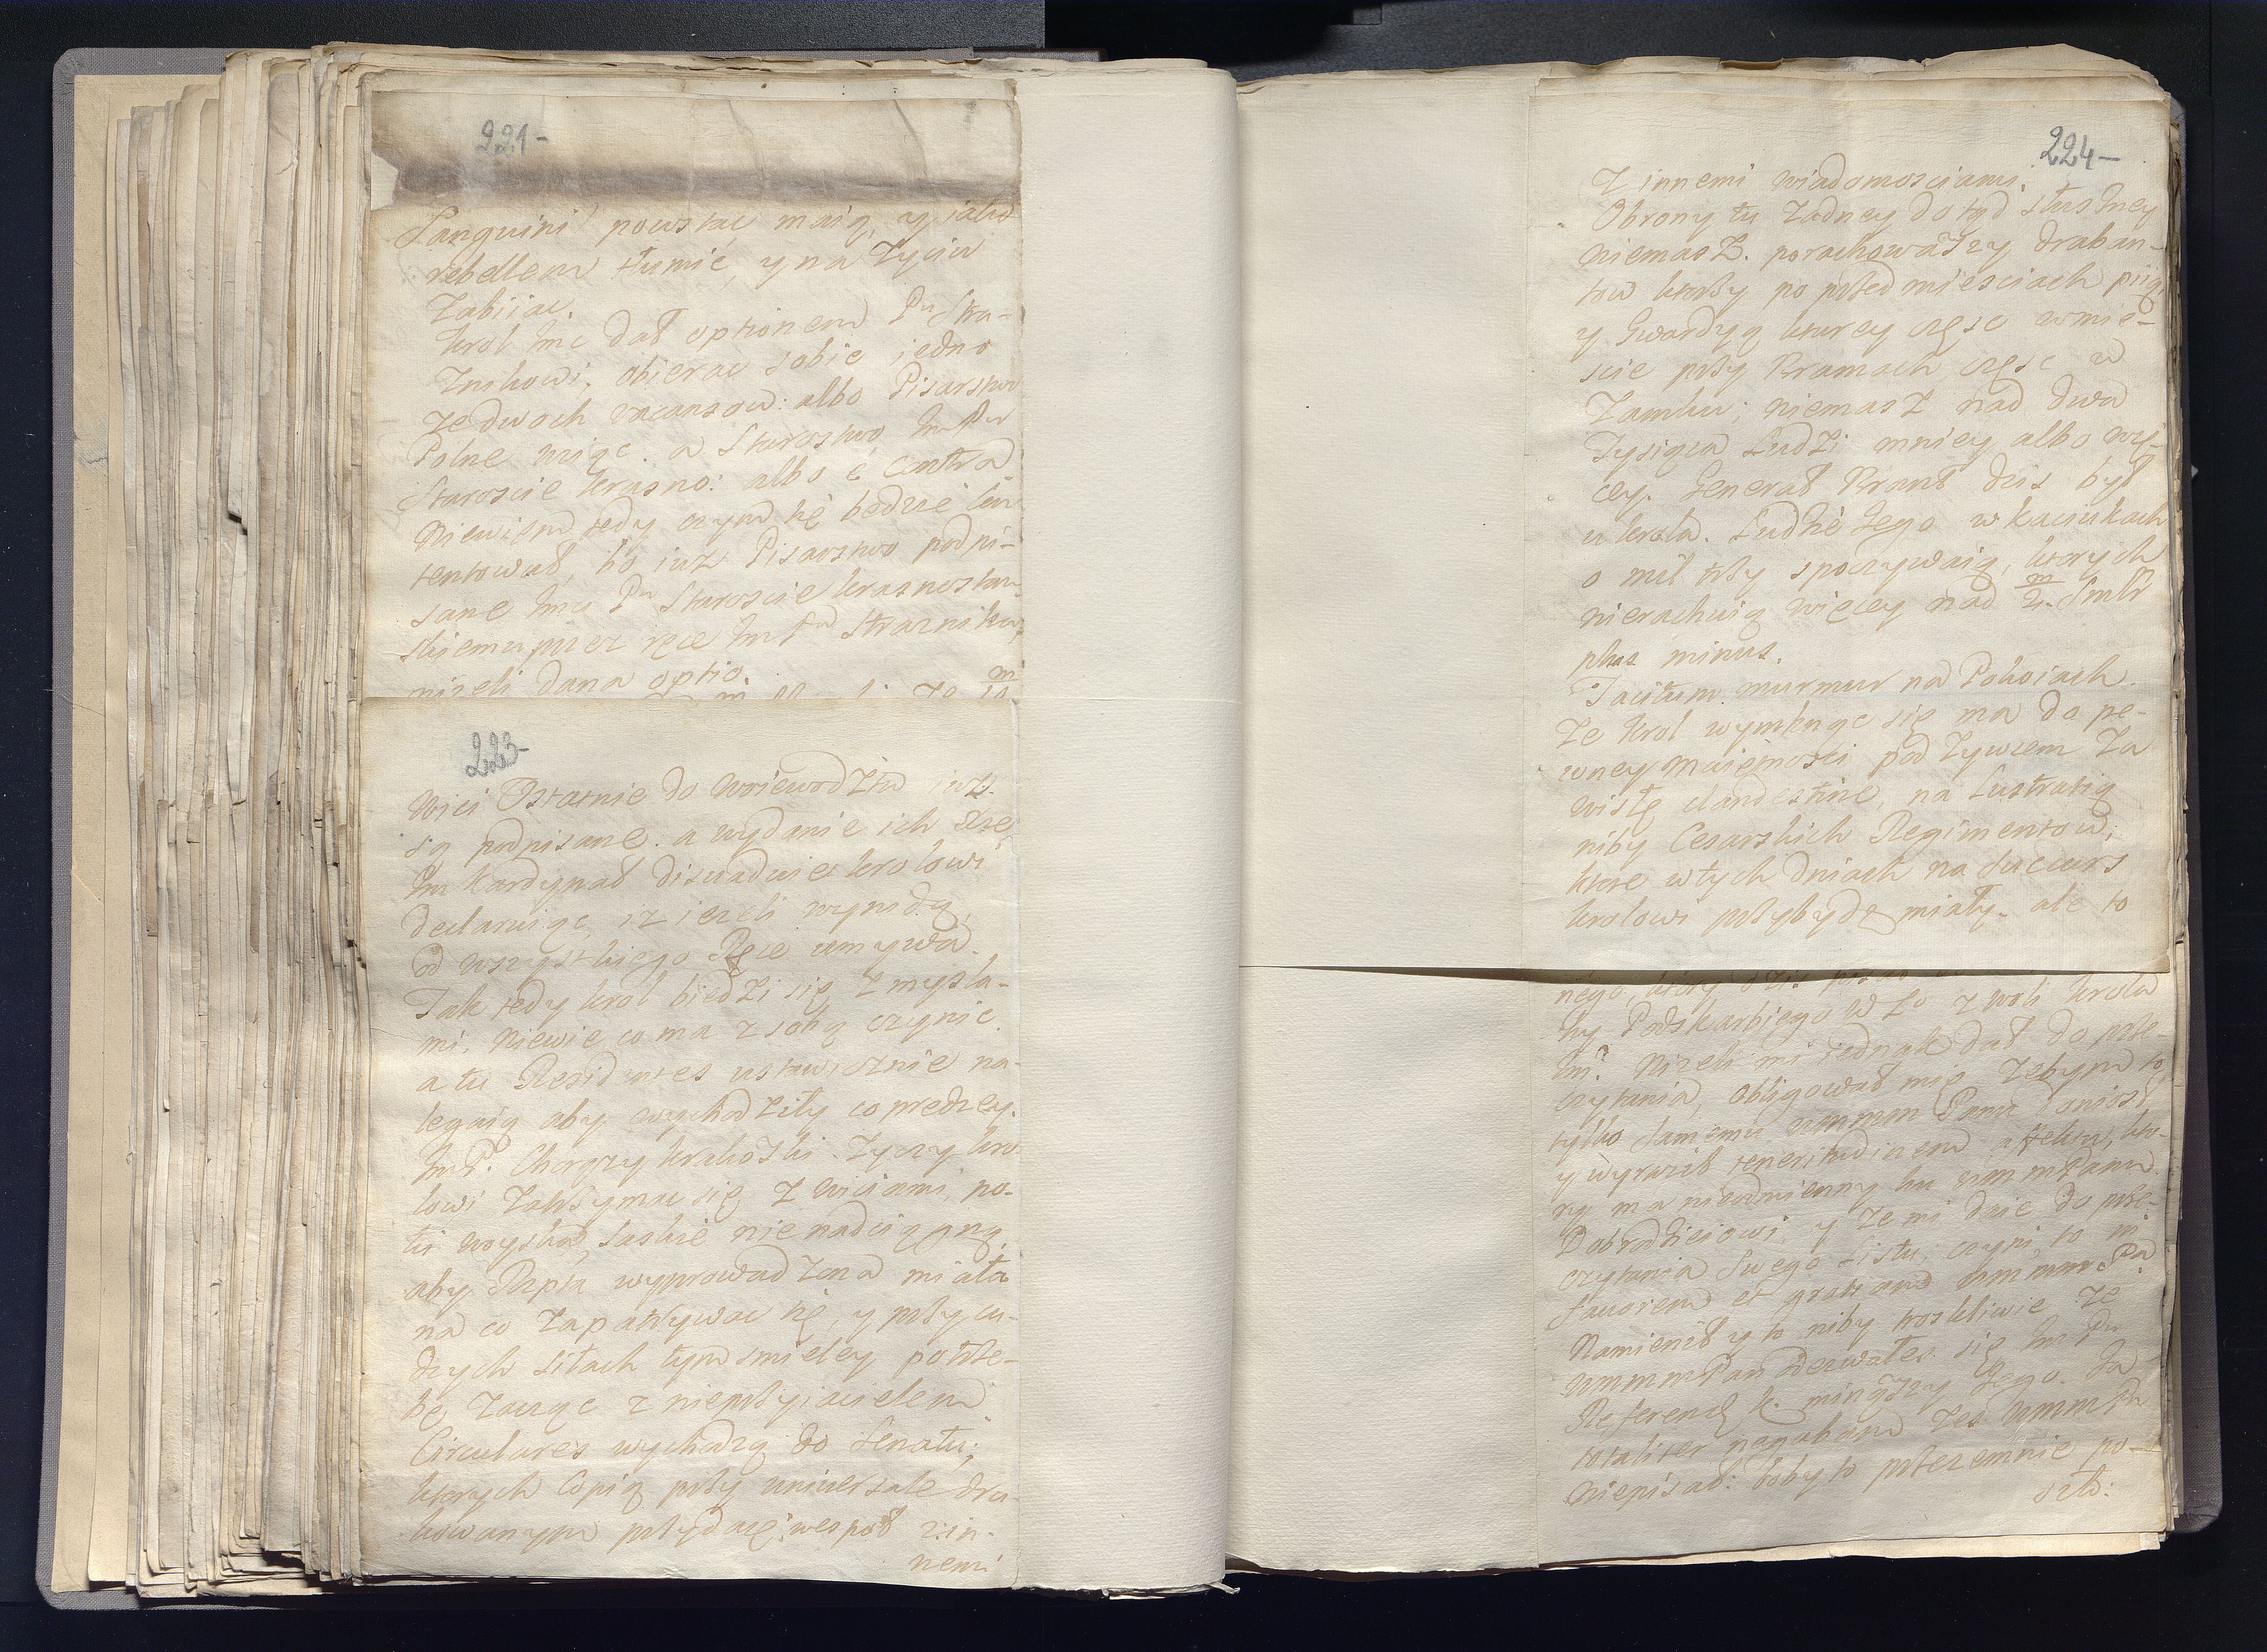 221-
Sanguini powstac maią, y iako
rebellem tłumić, y na Zyciu
Zabiiac.
Krol Imc dał optionem Pu Stra-
Znikowi, obierac sobie jedno
ze dwoch vacansow: albo Pisarstwo
Polne wziąc. a Starostwo Im Pu
Staroscie Krasno: albo è contra
Niewiem tedy czym się bedzie kon-
tentował, bo iuz Pisarstwo podpi-
sane Imci Pu Staroscie Krasnostaw-
skiemu przez ręce Im Pu Straznika,
nizeli dana optio.
223-
Wici Ostatnie do Woiewodztw iuz
są podpisane. a wydanie ich Xże
Im Kardynał disuaduie Krolowi
declaruiąc, iz iezeli wynidą,
od wszystkiego Ręce umywa.
Tak tedy Krol biedzi się z mysla-
mi. Niewie co ma z sobą czynic.
a tu Residentes ustawicznie na-
legaią aby wychodziły co predzey.
Im P. Chorązy Krakoski zyczy Kro-
lowi Zatrzymac się z Wiciami, po-
ki woyska Saskie nie nadciągną,
aby Rzpta wyprowadzona miała
na co Zapatrywac się, y przy cu-
dzych siłach tym smieley potrze-
bę Zacząc z nieprzyiacielem
Circulares wychodzą do Senatu;
ktorych Copią przy uniwersale dru-
kowanym przydaię, wespoł z in-
nemi
224-
Z innemi wiadomosciami.
Obrony tu Zadney dotąd słuszney
niemasz. porachowawszy draban-
tow ktorzy po przedmiesciach piią,
y Gwardyą ktorey częsc w mie-
scie przy Bramach częsc w
Zamku; niemasz nad dwa
Tysiąca Ludzi mniey albo wię-
cey. Generał Brant dzis był
u Krola. Ludzie Jego w Kaciukach
o mil trzy spoczywaią, ktorych
nierachuią więcey nad m/2.
plus minus.
Tacitum murmur na Pokoiach
ze Krol wymknąc się ma do pe-
wney maiętnosci pod Zywcem Za
Wisłę clandestine, na Lustratią
niby Cesarskich Regimentow;
ktore w tych dniach na succurs
Krolowi przybydz miały. ale to
nego, ktory dzis
by Podskarbiego W Lo z woli Krola
Im? Nizeli mi iednak dał do prze-
czytania, obligował mię Zebym to
tylko samemu ummm Panu doniosł
y wyraził teneritudinem affektu, kto-
ry ma nieodmienny ku um mPanu
Dobrodzieiowi. y ze mi daie do prze-
czytania swego Listu; czyni to in
favorem et gratiam ummm Pa.
Namienił y to niby troskliwie, ze
ummmPan zerwałes się Im Pu
Referend K. minąwszy Jego. Ja
totaliter negabam zes ummm Pn
niepisał: boby to przezemnie po-
szło: